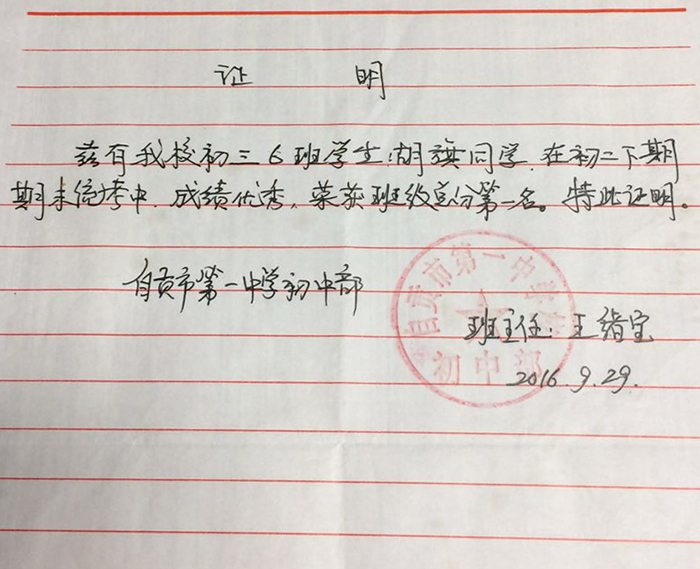 证 明
兹有我校初三6班学生胡旗同学,在初二下期
期末统考中,成绩优秀,荣获班级总分第一名。特此证明。
自贡市第一中学初中部
自贡市第一中学校
初中部
班主任:王绪宝
2016.9.29.